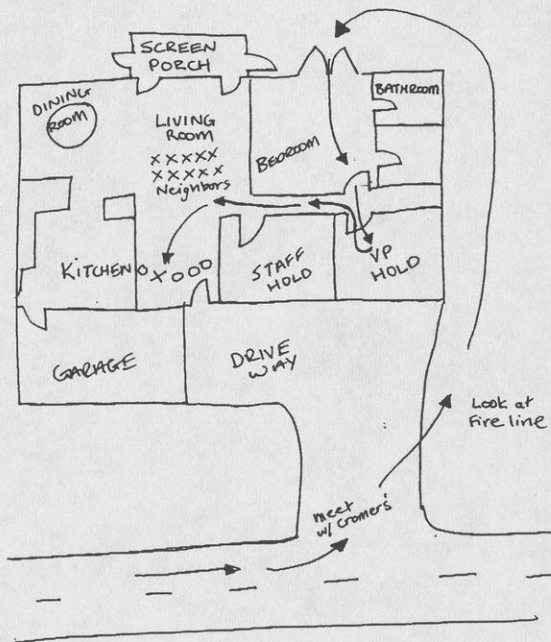 SCREEN
PORCH
DINING
ROOM
LIVING
ROOM
XXXXX
XXXXX
Neighbors
BEDROOM
BATHROOM
KITCHEN
O X O O O
STAFF
HOLD
VP
HOLD
GARAGE
DRIVE
WAY
Look at
Fire line
meet
w/ Cromers'